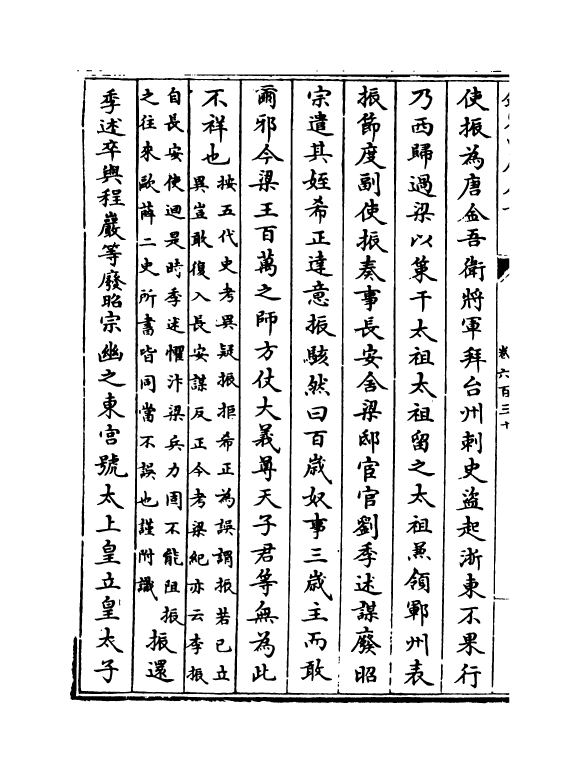 卷六百三十
使振為唐金吾衛將軍拜台州刺史盜起浙東不果行
乃西歸過梁以策干太祖太祖留之太祖兼領鄆州表
振節度副使振奏事長安舍梁邸宦官劉季述謀廢昭
宗遣其姪希正達意振駭然曰百歲奴事三歲主而敢
爾邪今梁王百萬之師方仗大義尊天子君等無為此
不祥也
按五代史考異疑振拒希正為誤謂振若已立
異豈敢復入長安謀反正今考梁紀亦云李振
自長安使迴是時季述懼汴梁兵力固不能阻振
之往來歐薛二史所書皆同當不誤也謹附識
振還
季述卒與程巖等廢昭宗幽之東宮號太上皇立皇太子